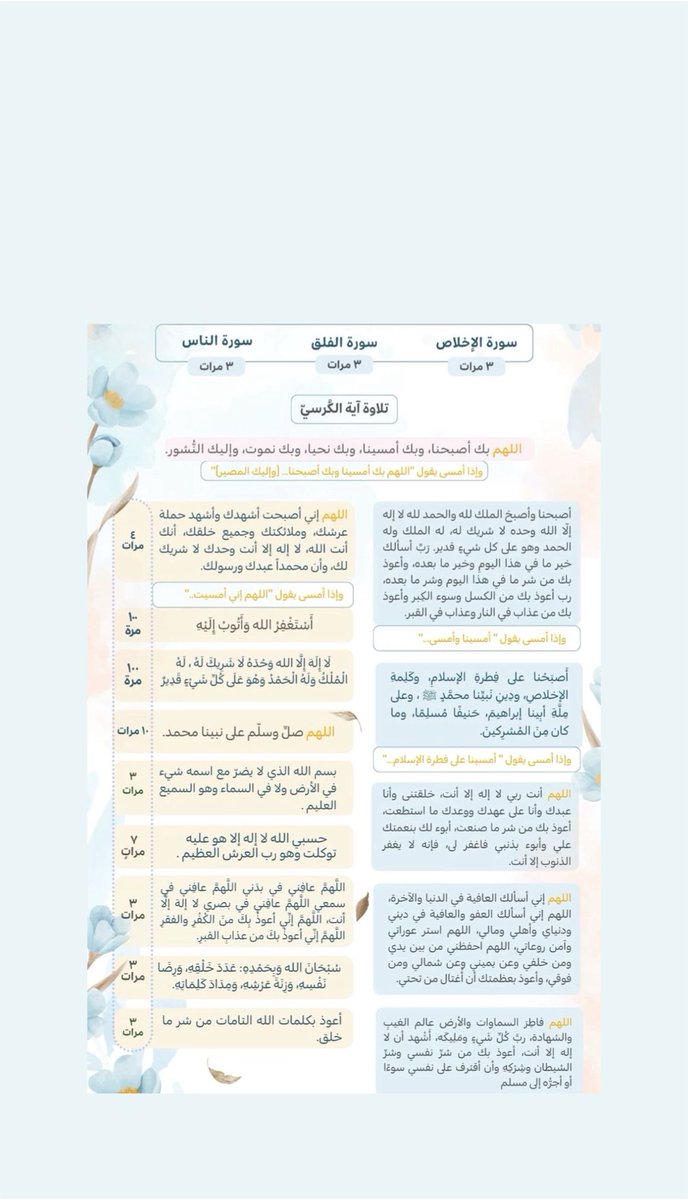 سورة الإخلاص
٣ مرات
سورة الفلق
٣ مرات
سورة الناس
٣ مرات
تلاوة آية الكُرسيّ
اللهم بك أصبحنا، وبك أمسينا، وبك نحيا، وبك نموت، وإليك النُّشور.
وإذا أمسى يقول "اللهم بك أمسينا وبك أصبحنا... [وإليك المصير]"
أصبحنا وأصبحَ الملك لله والحمد لله لا إله
إلّا الله وحده لا شريك له، له الملك وله
الحمد وهو على كل شيءٍ قدير. رَبّ أسألك
خير ما في هذا اليوم وخير ما بعده، وأعوذ
بك من شر ما في هذا اليوم وشر ما بعده،
رب أعوذ بك من الكسل وسوء الكِبر وأعوذ
بك من عذاب في النار وعذاب في القبر.
وإذا أمسى يقول " أمسينا وأمسى..."
أَصبَحْنا على فِطرةِ الإسلامِ، وكَلِمةِ
الإخلاصِ، ودِينِ نَبيِّنا محمَّدٍ ﷺ ، وعلى
مِلَّةِ أبِينا إبراهيمَ، حَنيفًا مُسلِمًا، وما
كان مِنَ المُشرِكينَ.
وإذا أمسى يقول " أمسينا على فطرة الإسلام..."
اللهم أنت ربي لا إله إلا أنت، خلقتنى وأنا
عبدك وأنا على عهدك ووعدك ما استطعت،
أعوذ بك من شر ما صنعت، أبوء لك بنعمتك
علي وأبوء بذنبي فاغفر لى، فإنه لا يغفر
الذنوب إلا أنت.
اللهم إني أسألك العافية في الدنيا والآخرة،
اللهم إني أسألك العفو والعافية في ديني
ودنياي وأهلي ومالي، اللهم استر عوراتي
وآمن روعاتي، اللهم احفظني من بين يدي
ومن خلفي وعن يميني وعن شمالي ومن
فوقي، وأعوذ بعظمتك أن أُغتال من تحتي.
اللهم فاطِرَ السماوات والأرض عالم الغيبِ
والشهادة، ربَّ كُلِّ شَيءٍ ومَلِيكَه، أَشْهد أن لا
إله إلا أنت، أعوذ بك من شرّ نفسي وشرّ
الشيطان وشِرْكِهِ وأن أقترف على نفسي سوءًا
أو أجرَّه إلى مسلم
اللهم إني أصبحت أشهدك وأشهد حملة
عرشك، وملائكتك وجميع خلقك، أنك
أنت الله، لا إله إلا أنت وحدك لا شريك
لك، وأن محمداً عبدك ورسولك.
٤
مرات
وإذا أمسى يقول "اللهم إني أمسيت.."
أَسْتَغْفِرُ الله وَأَتُوبُ إِلَيْهِ
١٠٠
مرة
لَا إِلَهَ إِلَّا الله وَحْدَهُ لَا شَرِيكَ لَهُ ، لَهُ
الْمُلْكُ وَلَهُ الْحَمْدُ وَهُوَ عَلَى كُلِّ شَيْءٍ قَدِيرٌ
١٠٠
مرة
اللهم صلِّ وسلّم على نبينا محمد.
١٠ مرات
بسم الله الذي لا يضرّ مع اسمه شيء
في الأرض ولا في السماء وهو السميع
العليم .
٣
مرات
حسبي الله لا إله إلا هو عليه
توكلت وهو رب العرش العظيم .
٧
مراتٍ
اللَّهمَّ عافِني في بدَني اللَّهمَّ عافِني في
سمعي اللَّهمَّ عافِني في بصري لا إلهَ إلَّا
أنت، اللَّهمَّ إنِّي أعوذُ بِكَ منَ الكُفْرِ والفقرِ
اللَّهمَّ إنِّي أعوذُ بكَ من عذابِ القبرِ.
٣
مرات
سُبْحَانَ الله وَبِحَمْدِهِ: عَدَدَ خَلْقِهِ، وَرِضَا
نَفْسِهِ، وَزِنَةَ عَرْشِهِ، وَمِدَادَ كَلِمَاتِهِ.
٣
مرات
أعوذ بكلمات الله التامات من شر ما
خلق.
٣
مرات